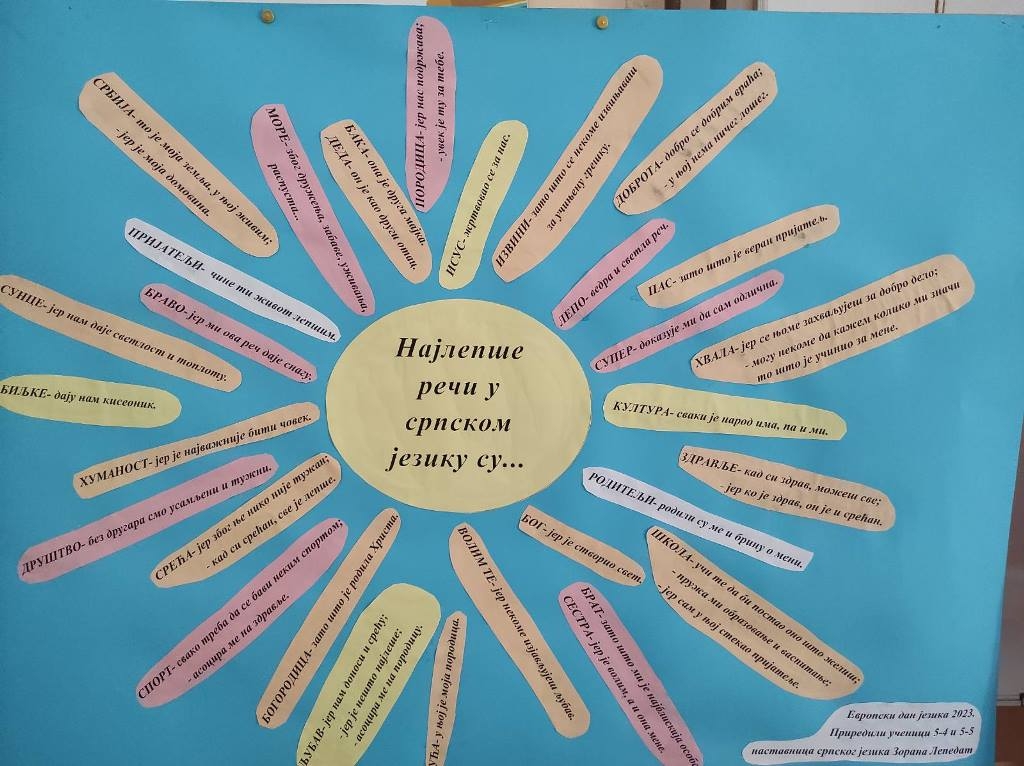 Најлепше
речи у
српском
језику су...
СРБИЈА- то је моја земља, у њој живим;
- јер је моја домовина.
МОРЕ- због дружења, забаве, уживања,
распуста...
БАКА- она је друга мајка.
ДЕДА- он је као други отац.
ПОРОДИЦА- јер нас подржава;
- увек је ту за тебе.
ИСУС- жртвовао се за нас.
ИЗВИНИ- зато што се некоме извињаваш
за учињену грешку.
ДОБРОТА- добро се добрим враћа;
- у њој нема ничег лошег.
ЛЕПО- ведра и светла реч.
ПАС- зато што је веран пријатељ.
СУПЕР- доказује ми да сам одлична.
ХВАЛА- јер се њоме захваљујеш за добро дело;
- могу некоме да кажем колико ми значи
то што је учинио за мене.
КУЛТУРА- сваки је народ има, па и ми.
ЗДРАВЉЕ- кад си здрав, можеш све;
- јер ко је здрав, он је и срећан.
РОДИТЕЉИ- родили су ме и брину о мени.
ШКОЛА- учи те да би постао оно што желиш;
- пружа ми образовање и васпитање;
- јер сам у њој стекао пријатеље.
БОГ- јер је створио свет.
БРАТ- зато што ми је најблискија особа
СЕСТРА- јер је волим, а и она мене.
ВОЛИМ ТЕ- јер некоме изјављујеш љубав.
УЋА- у њој је моја породица.
ЉУБАВ- јер нам доноси и срећу;
- јер је нешто најлепше;
- асоцира ме на породицу.
БОГОРОДИЦА- зато што је родила Христа.
СПОРТ- свако треба да се бави неким спортом;
- асоцира ме на здравље.
СРЕЋА- јер због ње нико није тужан;
- кад си срећан, све је лепше.
ДРУШТВО- без другара смо усамљени и тужни.
ХУМАНОСТ- јер је најважније бити човек.
БИЉКЕ- дају нам кисеоник.
СУНЦЕ- јер нам даје светлост и топлоту.
БРАВО- јер ми ова реч даје снагу.
ПРИЈАТЕЉИ- чине ти живот лепшим.
Европски дан језика 2023.
Приредили ученици 5-4 и 5-5
наставница српског језика Зорана Лепедат